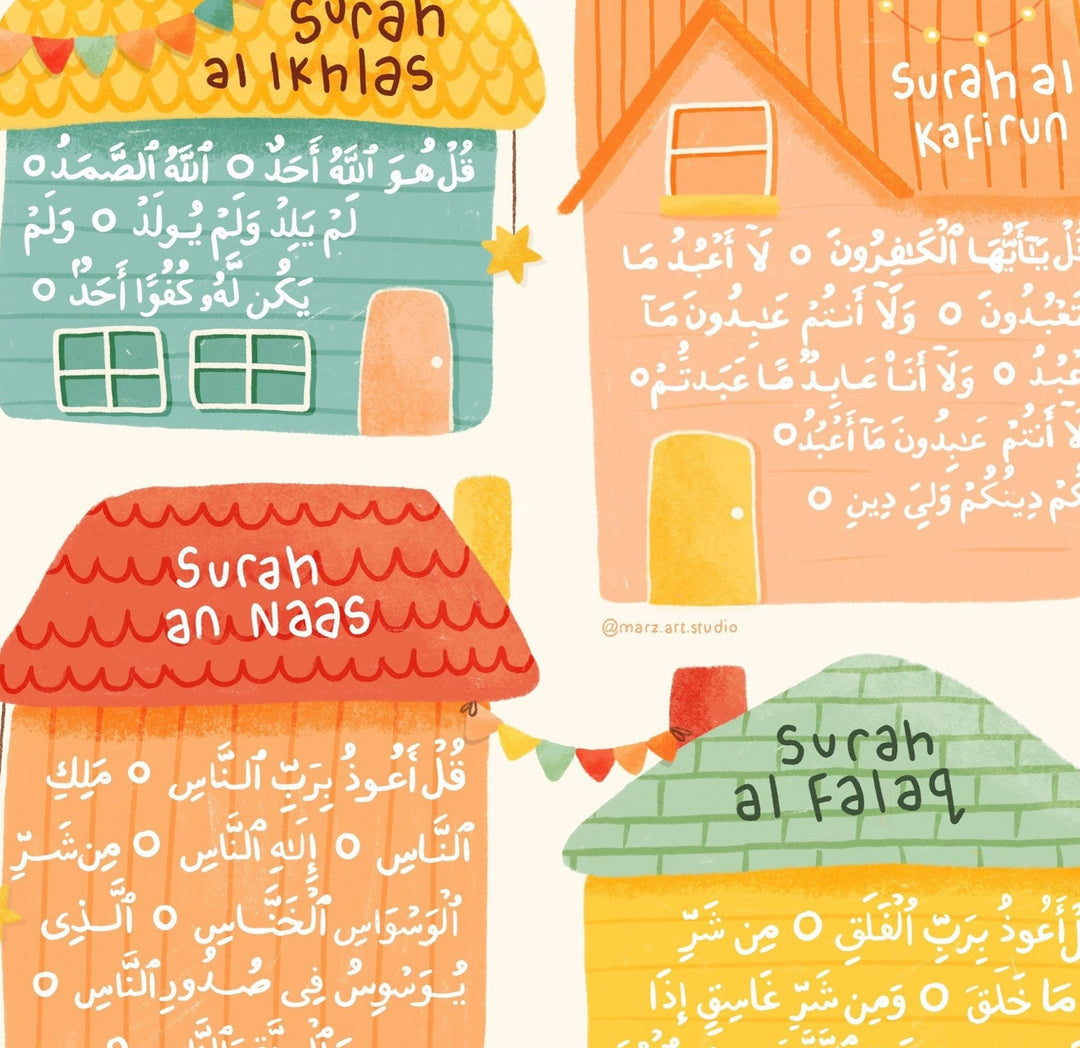 Surah
al Ikhlas
قُلْ هُوَ ٱللَّهُ أَحَدٌ ٱللَّهُ ٱلصَّمَدُ
لَمْ يَلِدْ وَلَمْ يُولَدْ وَلَمْ
يَكُن لَّهُۥ كُفُوًا أَحَدٌۢ
Surah al
Kafirun
يَـٰٓأَيُّهَا ٱلْكَـٰفِرُونَ لَآ أَعْبُدُ مَا
تَعْبُدُونَ وَلَآ أَنتُمْ عَـٰبِدُونَ مَآ
وَلَآ أَنَا۠ عَابِدٌ مَّا عَبَدتُّمْ
أَنتُمْ عَـٰبِدُونَ مَآ أَعْبُدُ
دِينُكُمْ وَلِىَ دِينِ
@marz.art.studio
Surah
an Naas
قُلْ أَعُوذُ بِرَبِّ ٱلنَّاسِ مَلِكِ
ٱلنَّاسِ إِلَـٰهِ ٱلنَّاسِ مِن شَرِّ
ٱلْوَسْوَاسِ ٱلْخَنَّاسِ ٱلَّذِى
يُوَسْوِسُ فِى صُدُورِ ٱلنَّاسِ
Surah
al Falaq
أَعُوذُ بِرَبِّ ٱلْفَلَقِ مِن شَرِّ
مَا خَلَقَ وَمِن شَرِّ غَاسِقٍ إِذَا